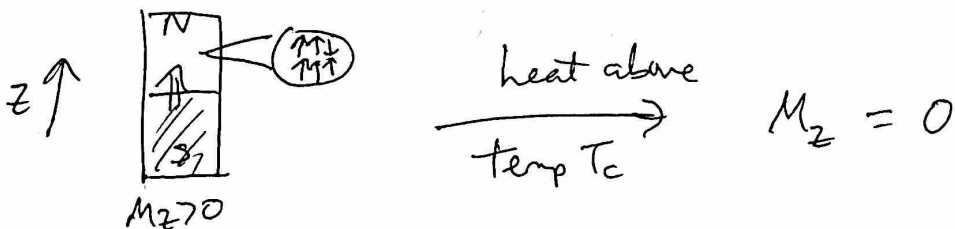 N
z
S
M_z>0
heat above
temp T_c
M_z = 0